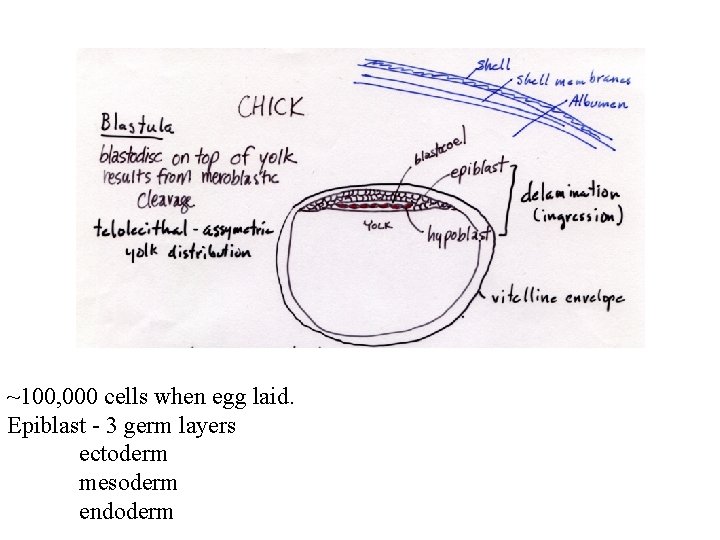 CHICK
Blastula
blastodisc on top of yolk
results from meroblastic
Cleavage
telolecithal - assymetric
yolk distribution
shell
shell membranes
Albumen
blastocoel
epiblast
YOLK
hypoblast
delamination
(ingression)
vitelline envelope
~100,000 cells when egg laid.
Epiblast - 3 germ layers
ectoderm
mesoderm
endoderm